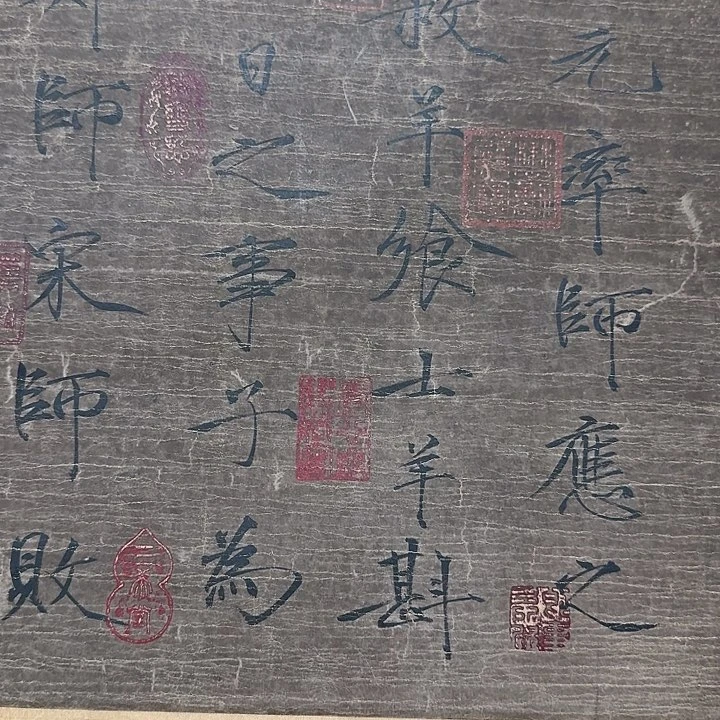 元率師應之
殺羊飨士羊斟
日之事子為
師宋師敗